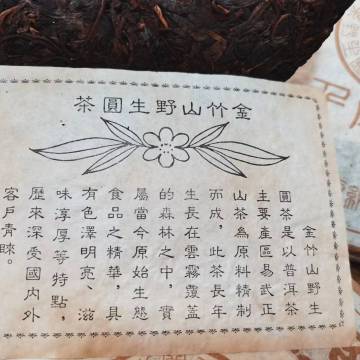 金竹山野生圓茶
金竹山野生
圓茶是以普洱茶
主要產區易武正
山茶為原料精制
而成，此茶長年
生長在雲霧覆蓋
的森林之中，實
屬當今原始生態
食品之精華，具
有色澤明亮、滋
味淳厚等特點，
歷來深受國內外
客戶青睞。